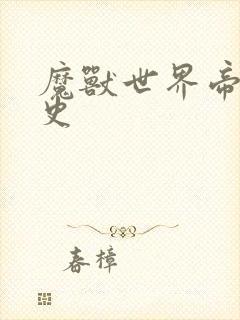 魔獸世界帝
史
春樟